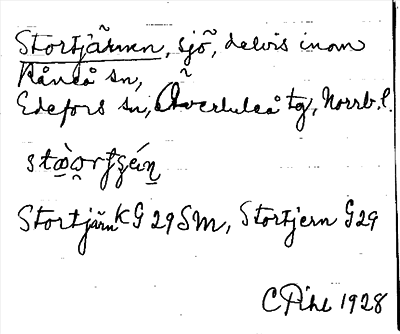 Stortjärnen, sjö, delvis inom
Råneå sn,
Edefors sn, Överluleå tg, Norrb. l.
stò̱o̱rtʂéi̱n̠
Stortjärn KG 29 SM, Stortjern G29
C Pihl 1928